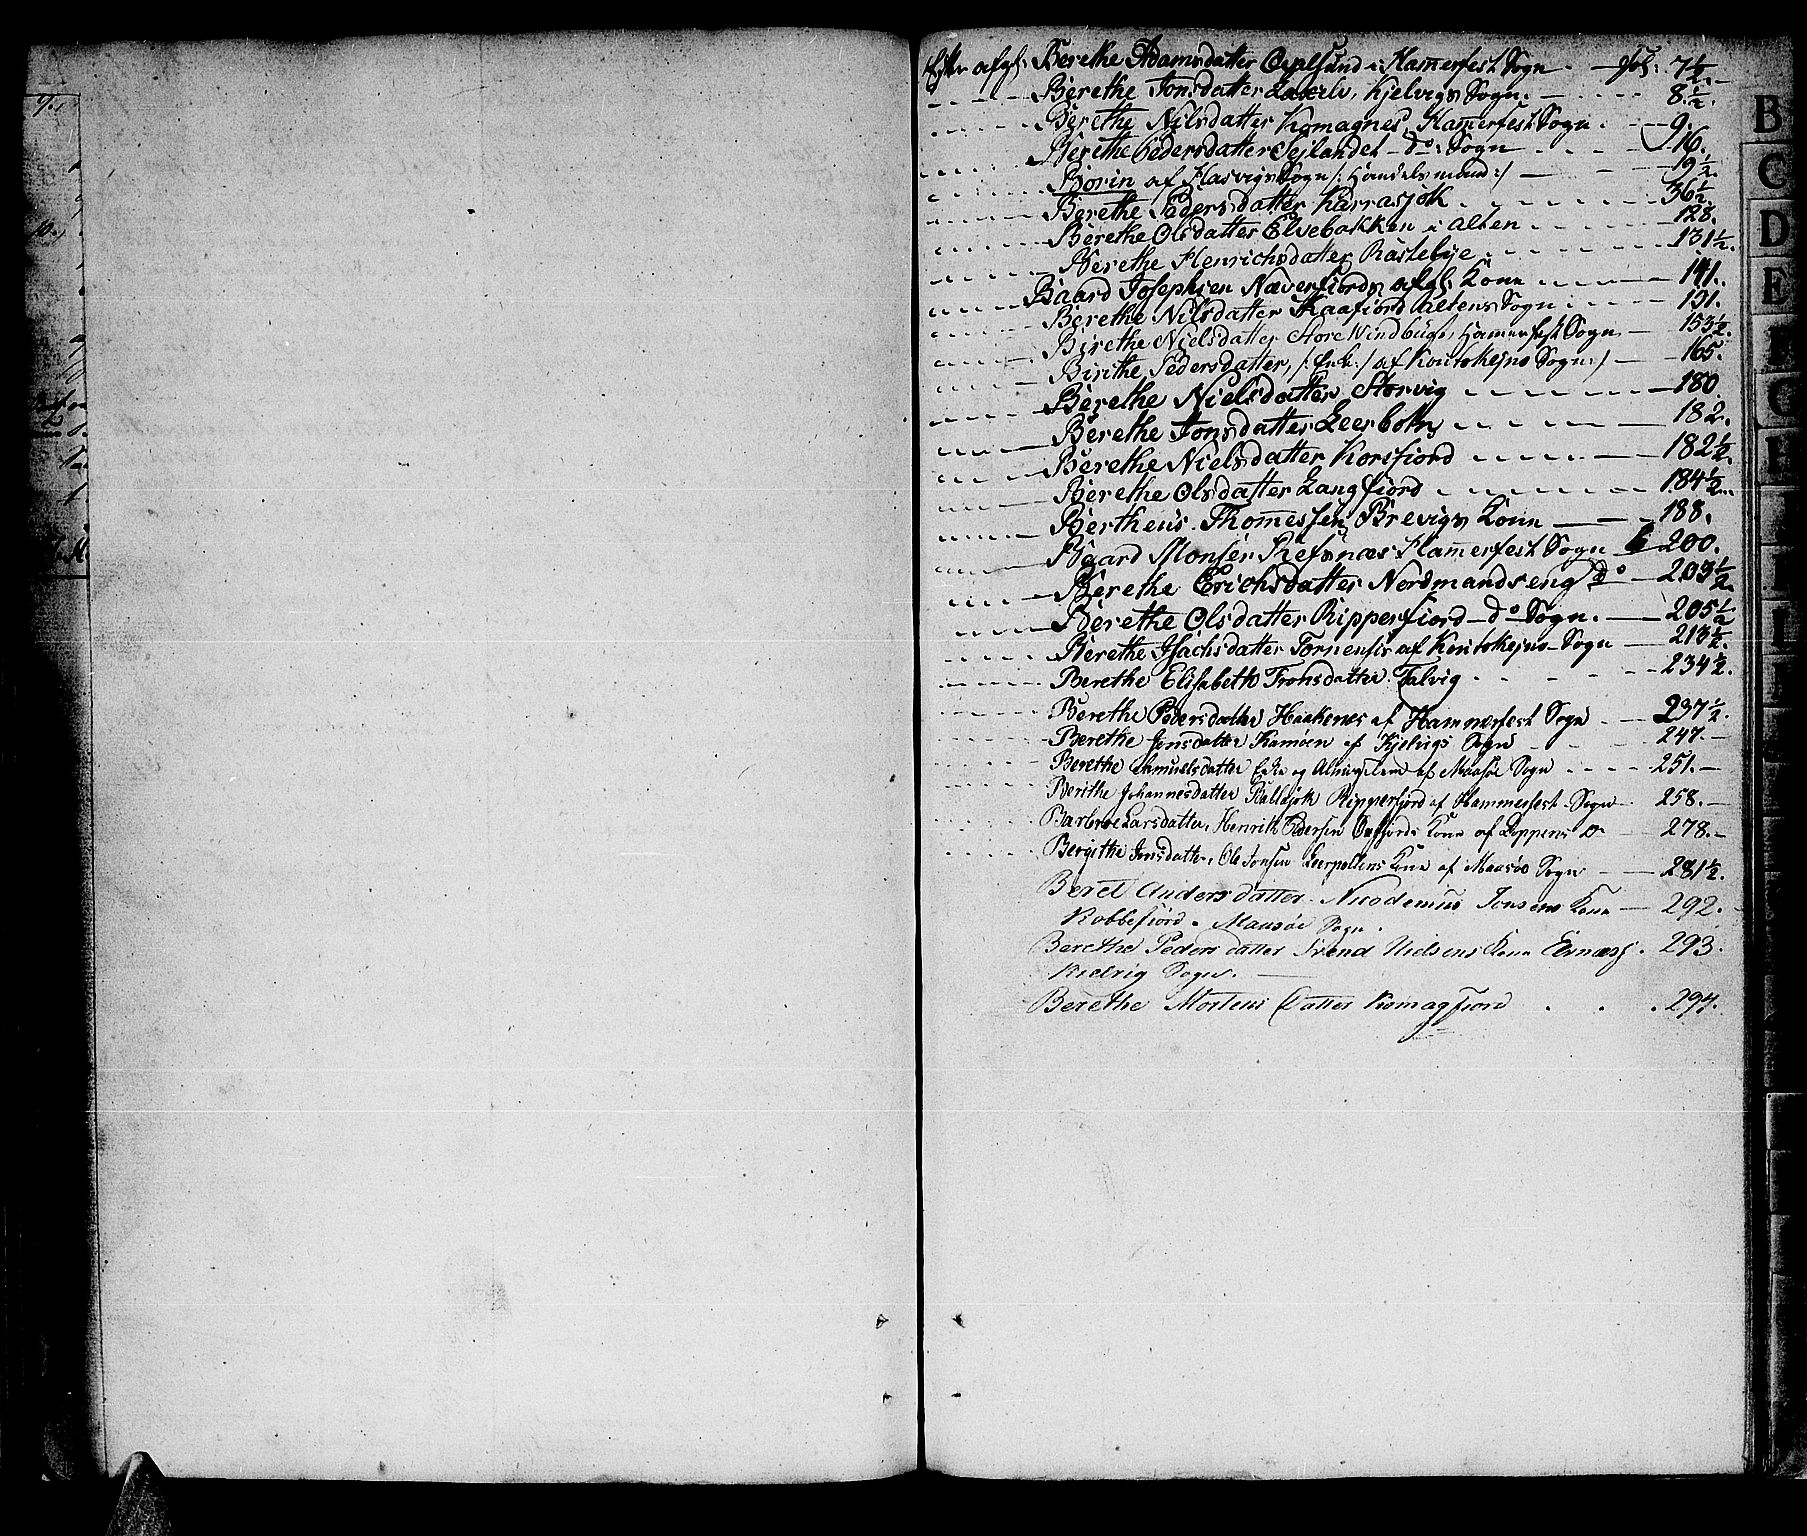 Efter afgl: Berethe Adamsdatter Qvalsund i Hamerfest Sogn Fol: 7½.
Berethe Jonsdatter Laxelv, Kjelvigs Sogn. 8½.
Berethe Nilsdatter Komagnes, Hamerfest Sogn. 9.
Berethe Pedersdatter Sejlandet d⁰: Sogn 16.
Borin af Hasvigs Sogn /: Handelsmand :/ 19½.
Berethe Pedersdatter Karrasjok 36½.
Berethe Olsdatter Elvebakken i Alten 128.
Berethe Henrichsdatter Rastebye 131½.
Baard Josephsen Næverfiords afgl: Kone 141.
Berethe Nilsdatter Kaafiord Altens Sogn 151.
Birethe Nielsdatter Store Vindbugt, Hamerfest Sogn 153½.
Birithe Pedersdatter, /: Enk: / af Koutokejno Sogn :/ 165.
Berethe Nielsdatter Storvig 180
Berethe Jonsdatter Leerbotn 182.
Berethe Nielsdatter Korsfiord 182½.
Berethe Olsdatter Langfiord 184½.
Bertheus Thomessen Brevigs Kone 188.
Baard Monsen Refsnæs Hamerfest Sogn 200.
Berethe Erichsdatter Nordmandseng d⁰ 203½
Berethe Olsdatter Ripperfiord d⁰ Sogn. 205½
Berethe Isachsdatter Tornensis af Koutokejno Sogn 213½.
Berethe Elisabeth Tronsdatter Talvig 234½.
Berethe Pedersdatter Haakenes af Hammerfest Sogn 237½.
Berethe Jonsdatter Kamøen af Kjelvigs Sogn 247.
Berethe Samuelsdatter Enke og af Maasøe Sogn 251.
Berithe Johannesdatter Ripperfjord af Hammerfest Sogn 258.
Barbroe Larsdatter, Henrik Pedersen Kone af Loppens 278.
Bergithe Jonsdatter, Ole Jonsen Leerpollens Kone af Maasøe Sogn 281½.
Beret Andersdatter Nicodemus Jonsens Kone 292.
Kobbefiord Maasøe Sogn.
Berethe Peders datter Svend Nielsens Kone 293.
Kielvig Sogn.
Berethe Mortens Datter Komagfiord 294.
B
C
D
E
G